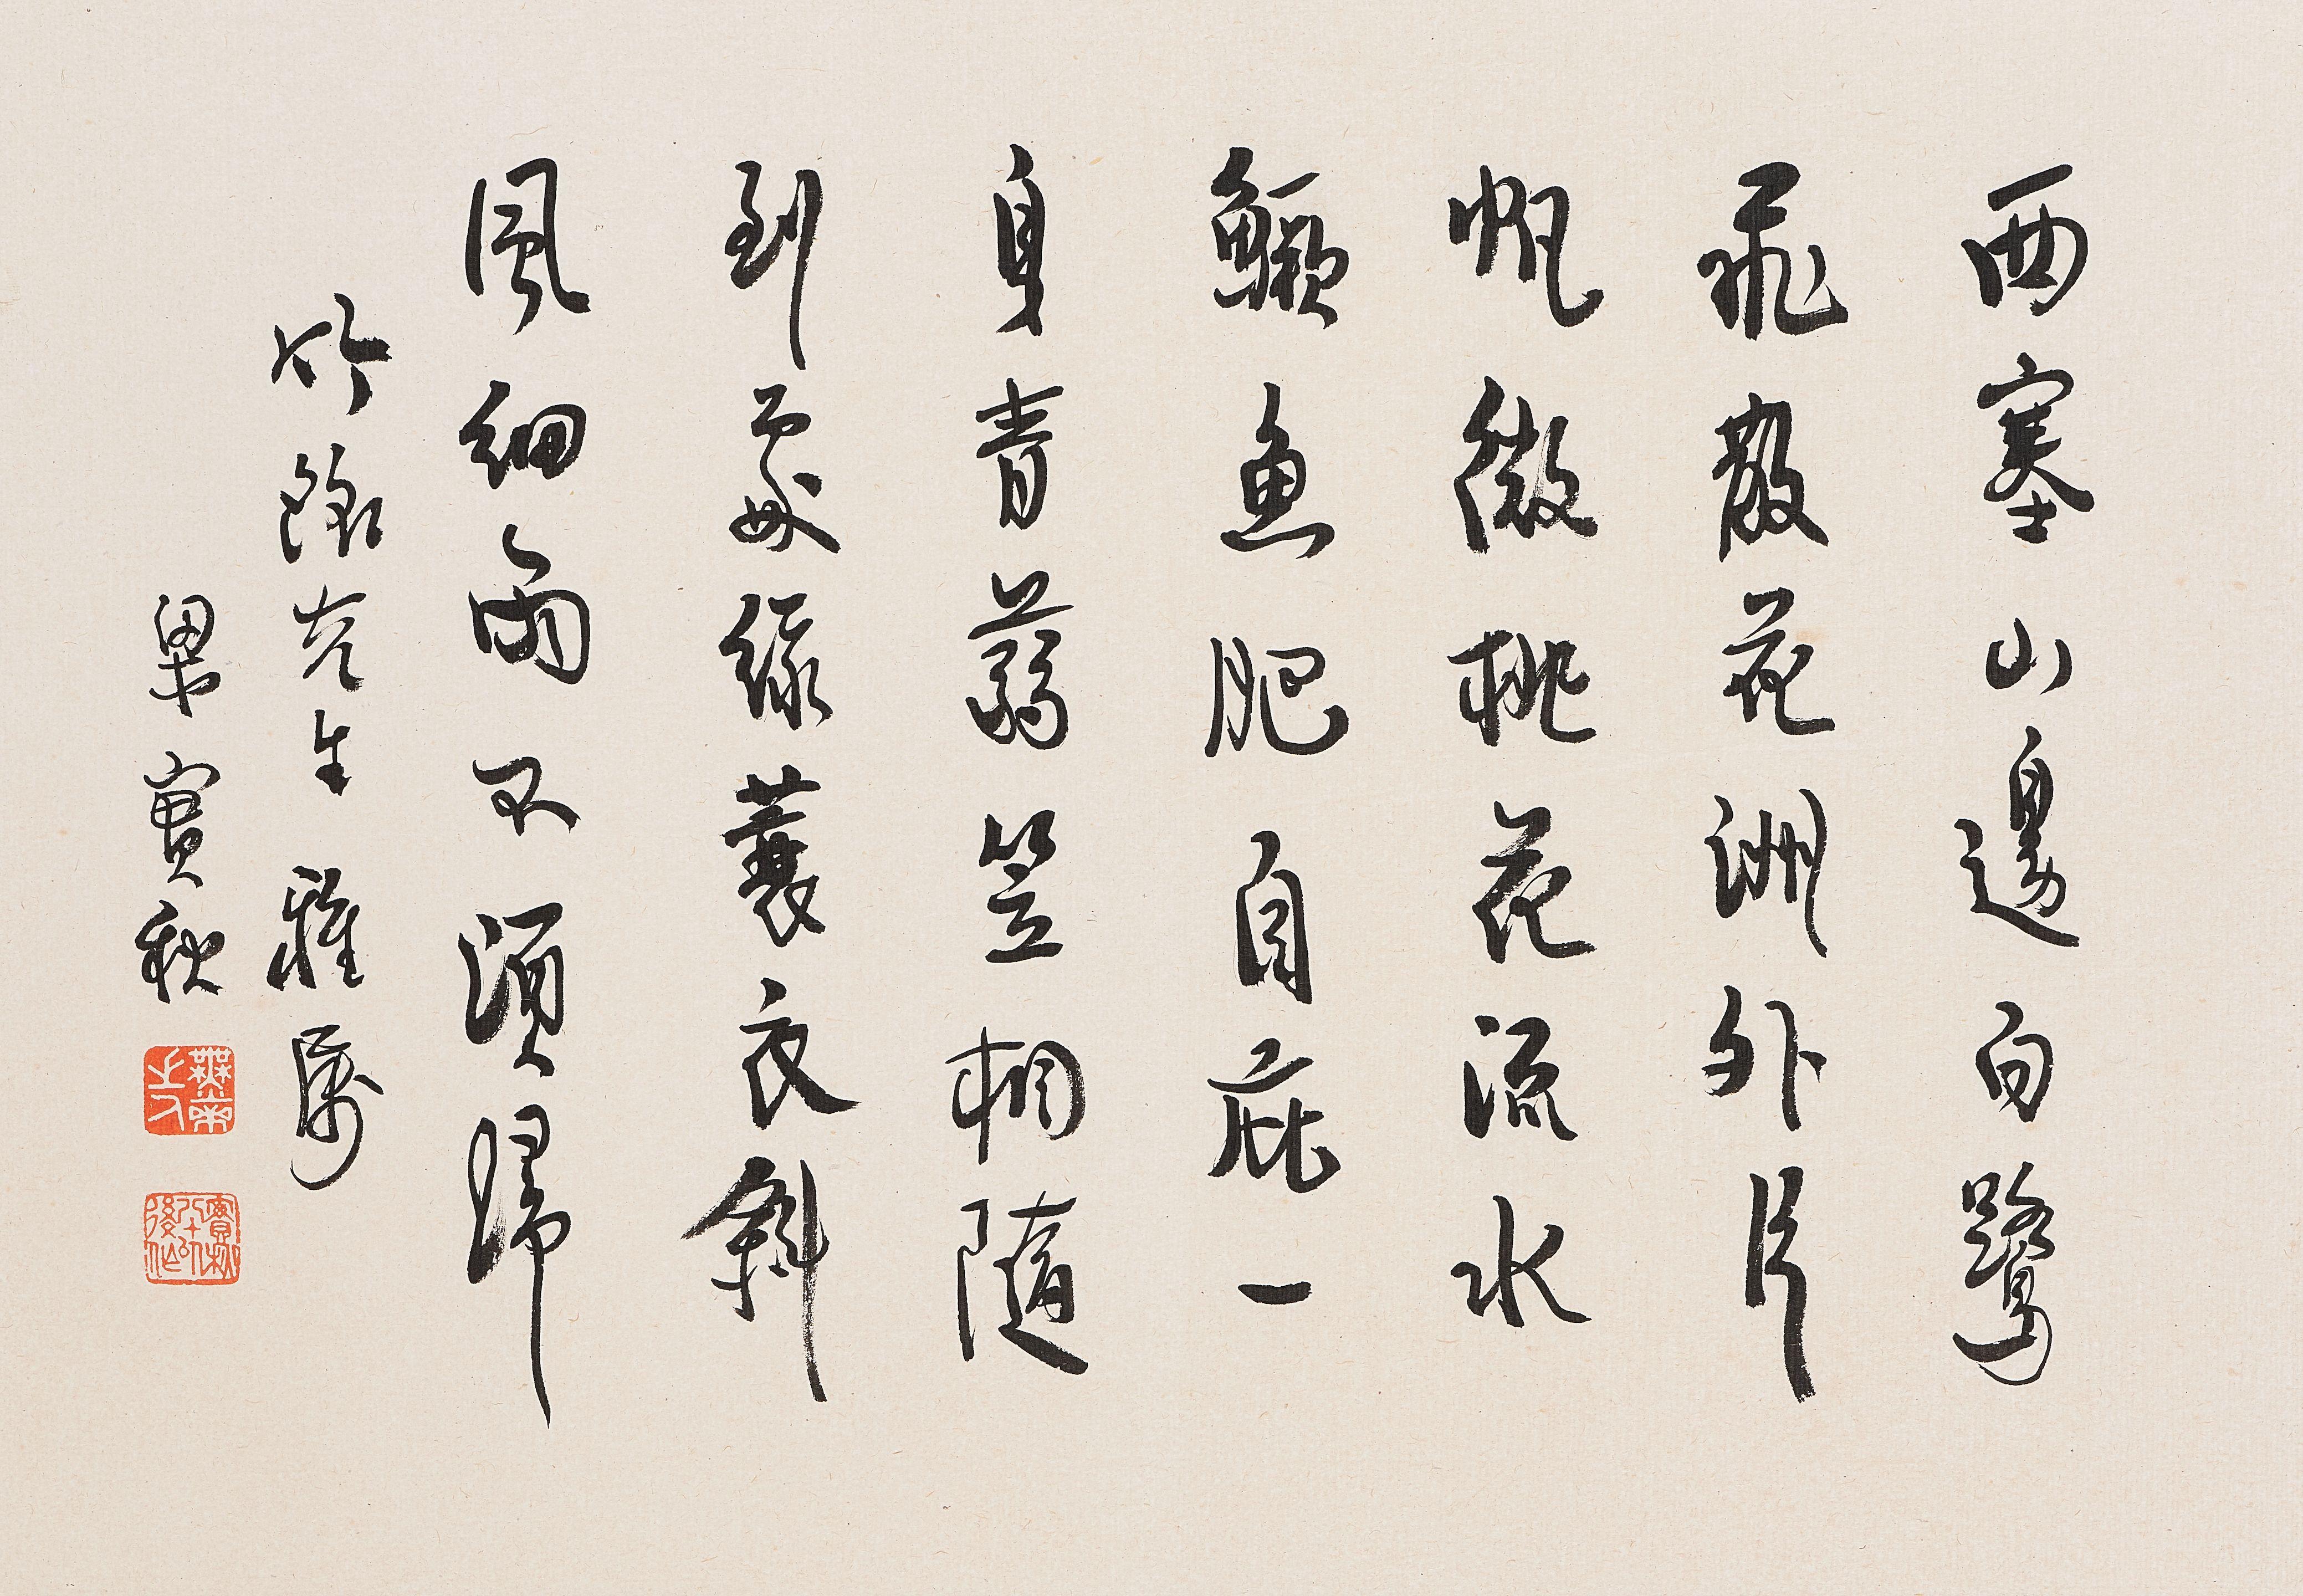 西塞山邊白鷺
飛散花洲外片
帆微桃花流水
鱖魚肥自庇一
身青蒻笠相隨
到處綠蓑衣斜
風細雨不須歸
竹銘先生雅屬
梁實秋
實秋八十以後作